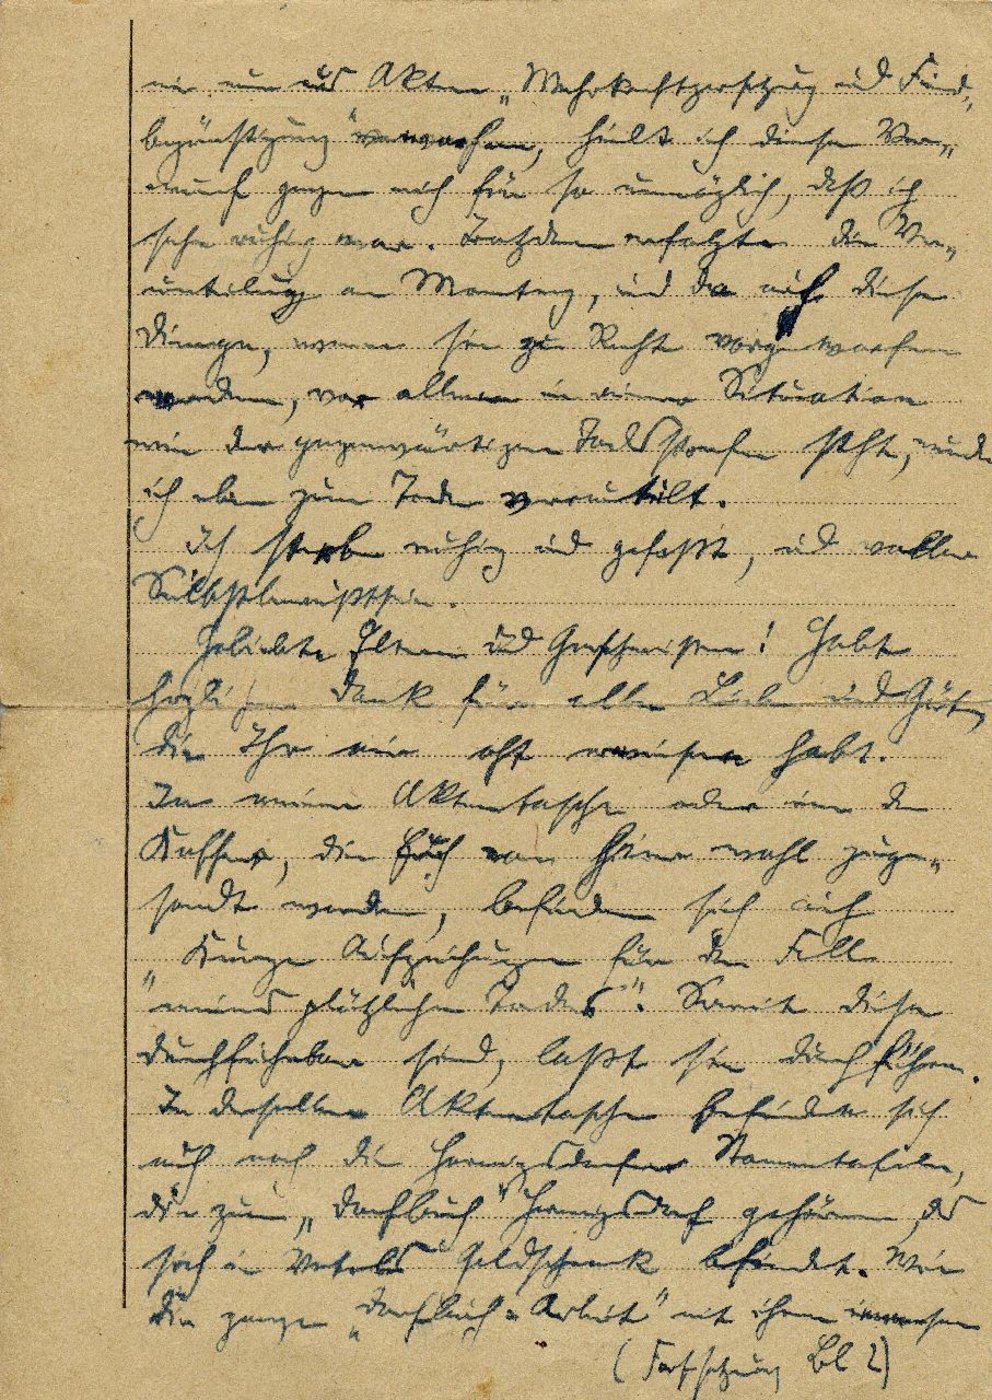 mir nun aus Akten „Wehrkraftzersetzung und Feind„
begünstigung" vorwarfen, hielt ich diesen Vor„
wurf gegen mich für so unmöglich, daß ich
sehr ruhig war. Trotzdem erfolgte die Ver„
urteilung am Montag, und da auf diese
Dinge, wenn sie zu Recht vorgeworfen
werden, vor allem in einer Situation
wie der gegenwärtigen Todesstrafe steht, wurde
ich eben zum Tode verurteilt.
Ich sterbe ruhig und gefaßt, und voller
Selbstbewußtsein.
Geliebte Eltern und Geschwister! Habt
herzlichen Dank für alle Liebe und Güte,
die Ihr mir oft erwiesen habt.
In meiner Aktentasche oder in den
Koffer, die Euch von hier wohl zuge„
sandt werden, befinden sich auch
„Kurze Aufzeichnungen für den Fall
„meines plötzlichen Todes". Soweit diese
durchführbar sind, laßt sie durchführen.
In derselben Aktentasche befinden sich
auch noch die Hermigsdorfer Stammtafeln,
die zum „Dorfbuch" Hermigsdorf gehören, das
sich in Vaters Geldschrank befindet. Wie
die ganze „Dorfbuch-Arbeit" mit ihren
(Fortsetzung Bl 2)